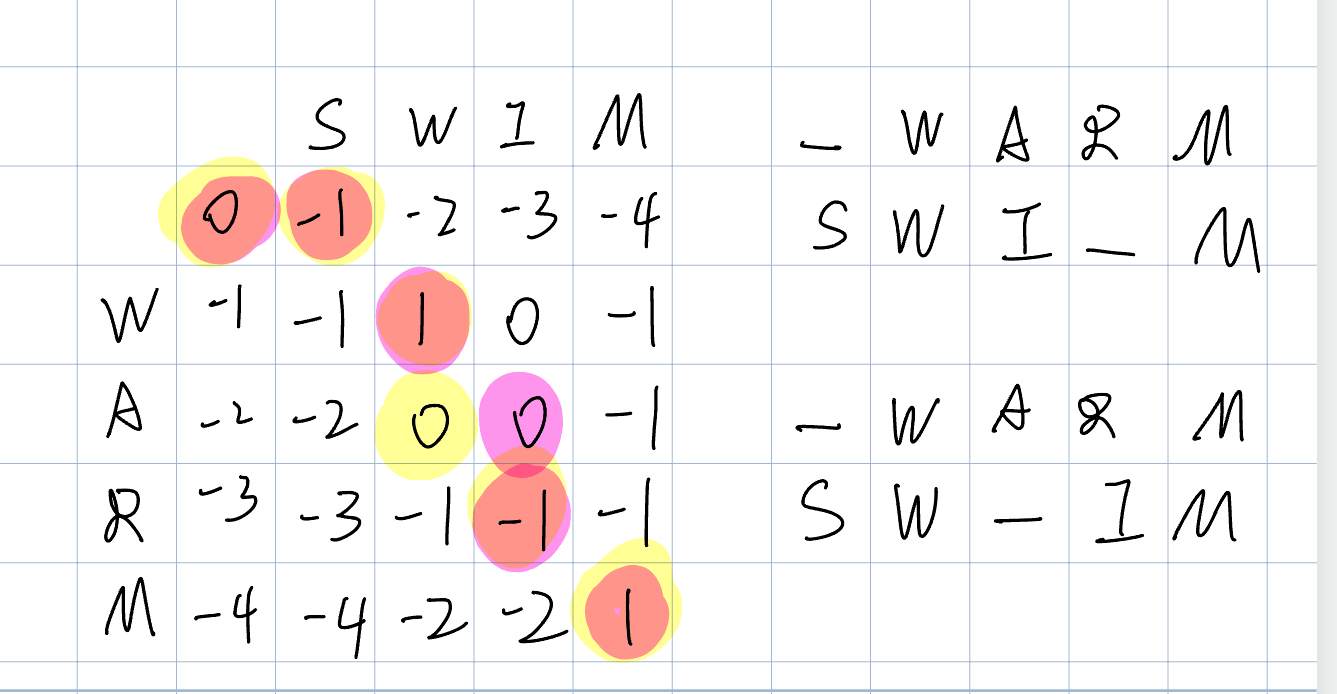 S W I M
0 -1 -2 -3 -4
W -1 -1 1 0 -1
A -2 -2 0 0 -1
R -3 -3 -1 -1 -1
M -4 -4 -2 -2 1
_ W A R M
S W I _ M
_ W A R M
S W _ I M